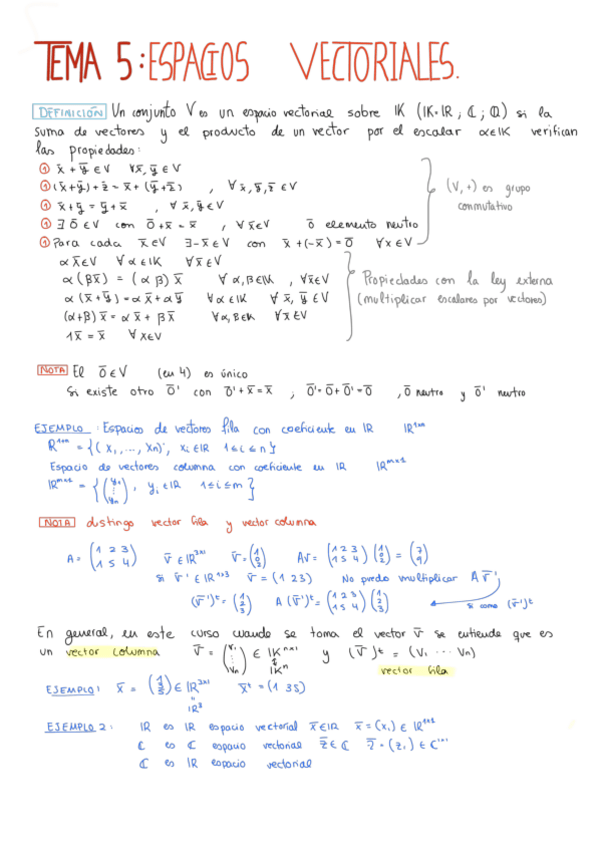 TEMA 5: ESPACIOS VECTORIALES.
DEFINICIÓN Un conjunto V es un espacio vectorial sobre IK (IK=IR ; ℂ ; ℚ) si la
suma de vectores y el producto de un vector por el escalar α∈IK verifican
las propiedades:
① x̄ + ȳ ∈ V ∀x̄, ȳ ∈ V
① (x̄+ȳ)+z̄ = x̄+(ȳ+z̄) , ∀ x̄,ȳ,z̄ ∈ V
① x̄+ȳ = ȳ+x̄ , ∀ x̄,ȳ ∈ V
① ∃ ō ∈ V con ō+x̄ = x̄ , ∀ x̄∈V ō elemento neutro
① Para cada x̄∈V ∃-x̄∈V con x̄+(-x̄)=ō ∀x∈V
(V,+) es grupo
conmutativo
αx̄∈V ∀α∈IK ∀x̄∈V
α(βx̄) = (αβ)x̄ ∀α,β∈IK , ∀x̄∈V
α(x̄+ȳ)=αx̄+αȳ ∀α∈IK ∀ x̄, ȳ ∈V
(α+β)x̄ = αx̄+βx̄ ∀α,β∈IK ∀x∈V
1x̄ = x̄ ∀x∈V
Propiedades con la ley externa
(multiplicar escalares por vectores)
NOTA El ō∈V (en 4) es único
Si existe otro ō' con ō'+x̄=x̄ ; ō'=ō+ō'=ō , ō neutro y ō' neutro
EJEMPLO : Espacios de vectores fila con coeficiente en IR IR¹ˣⁿ
R¹ˣⁿ = {(x₁,..., xₙ); xᵢ∈IR 1≤i≤n}
Espacio de vectores columna con coeficiente en IR IRᵐˣ¹
IRᵐˣ¹ = {(y₁ ⋮ yₙ), yᵢ∈IR 1≤i≤m}
NOTA distingo vector fila y vector columna
A = (1 2 3 / 1 5 4) v̄∈IR³ˣ¹ v̄=(1 0 2) Av = (1 2 3 / 1 5 4)(1 0 2) = (7 9)
Si v̄'∈IR¹ˣ³ v̄ = (1 2 3) No puedo multiplicar A v̄'
(v̄')ᵗ = (1 2 3) A(v̄')ᵗ = (1 2 3 / 1 5 4)(1 2 3) si como (v̄')ᵗ
En general, en este curso cuando se toma el vector v̄ se entiende que es
un vector columna v̄ = (v₁ ⋮ vₙ) ∈ IKⁿˣ¹ IKⁿ y (v̄)ᵗ = (v₁ ... vₙ)
vector fila
EJEMPLO 1 x̄ = (1 3 5) ∈ IR³ˣ¹ = IR³ x̄ᵗ = (1 3 5)
EJEMPLO 2: IR es IR espacio vectorial x̄∈IR x̄=(x₁)∈IR¹ˣ¹
ℂ es ℂ espacio vectorial z̄∈ℂ z̄=(z₁)∈ℂ¹ˣ¹
ℂ es IR espacio vectorial